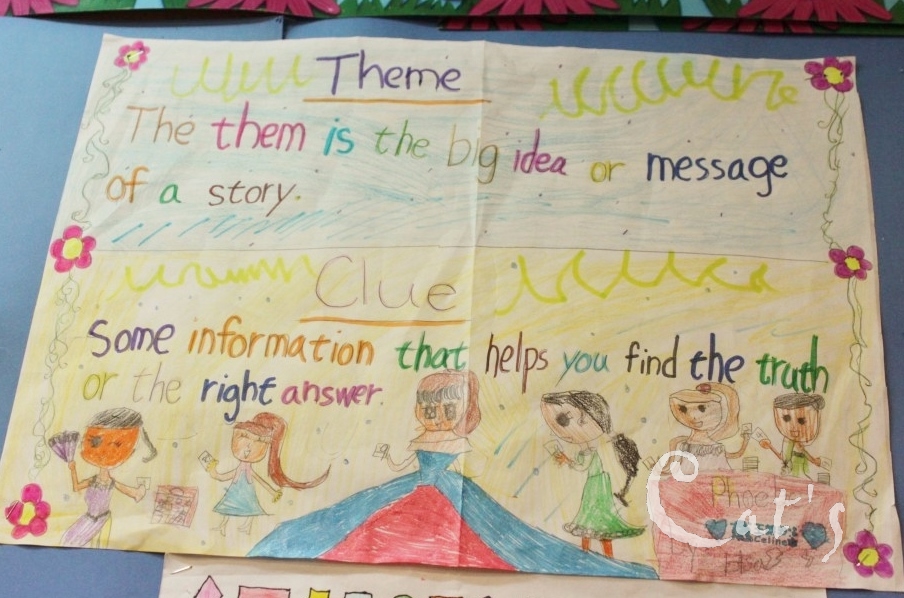 Theme
The them is the big idea or message
of a story.
Clue
Some information that helps you find the truth
or the right answer.
Cat's
Phoe
Celine
By